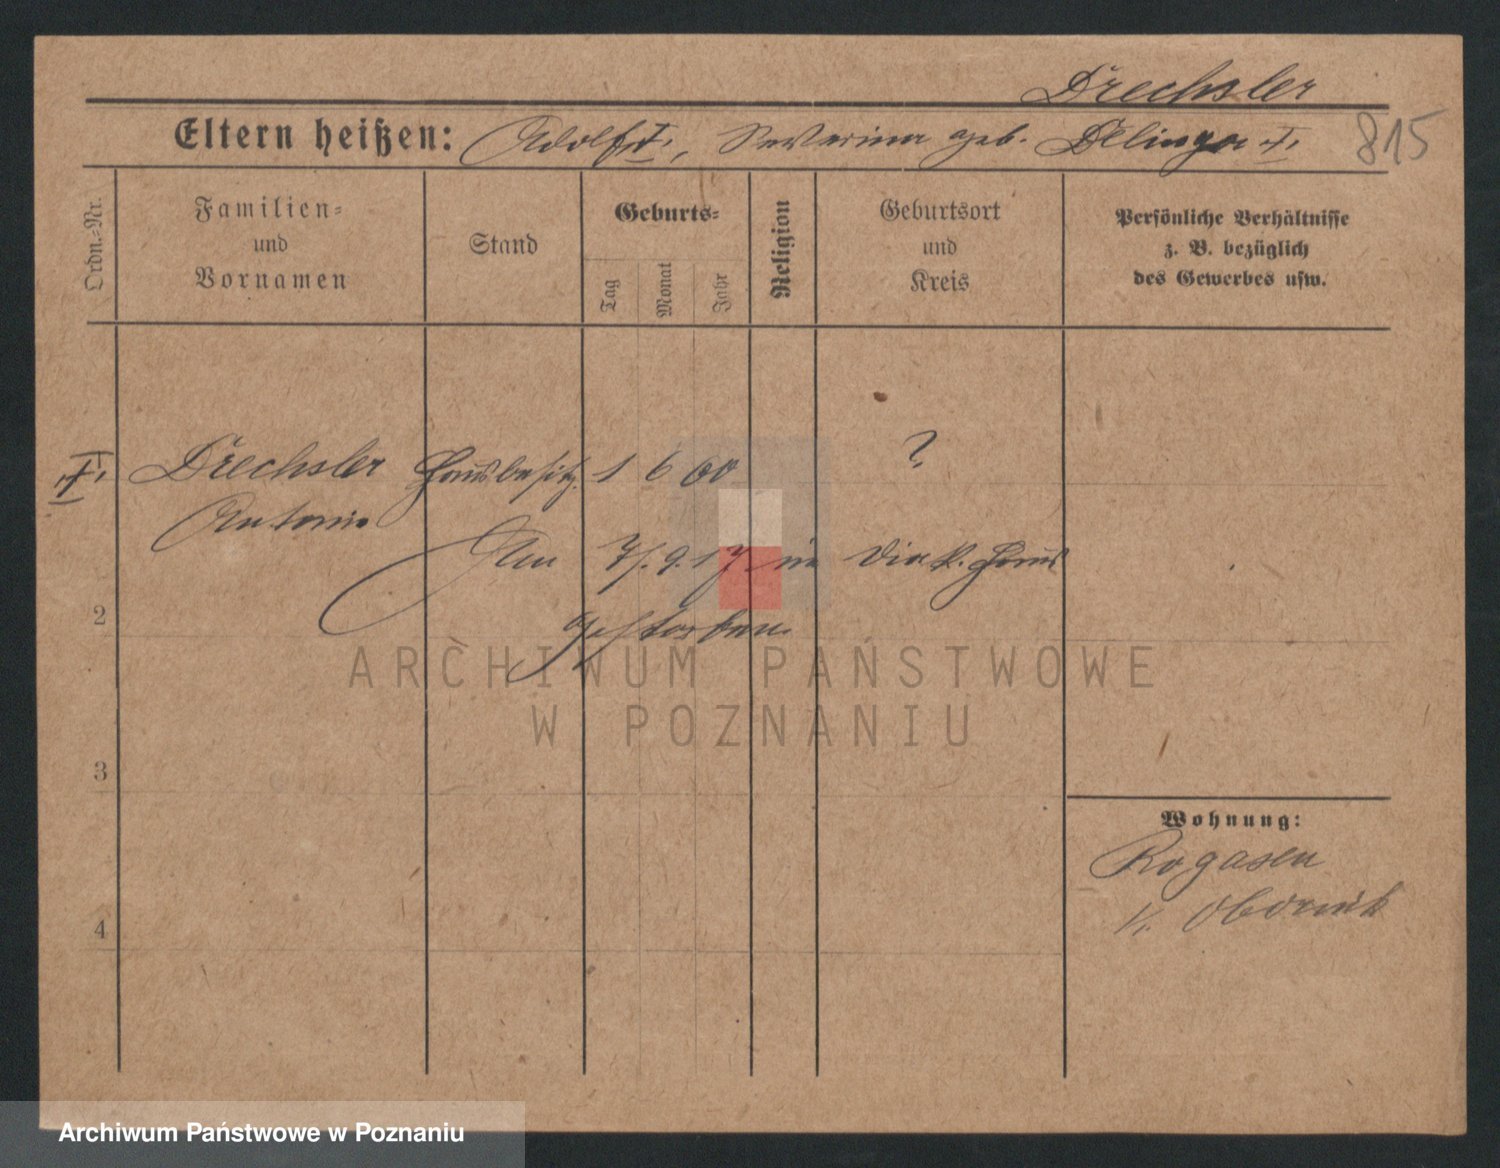 Drechsler
Eltern heißen: Adolf †, Severina geb. Delinger † 815
Ordn.-Nr.
Familien- und Vornamen
Stand
Geburts-
Tag
Monat
Jahr
Religion
Geburtsort und Kreis
Persönliche Verhältnisse z. B. bezüglich des Gewerbes usw.
† Drechsler Hausbesitz. 1 6 60 ?
Antonie
Am 7/. 9. 17 im Diak. Haus
gestorben
2
3
4
Wohnung:
Rogasen
K. Obornik
ARCHIWUM PAŃSTWOWE
W POZNANIU
Archiwum Państwowe w Poznaniu